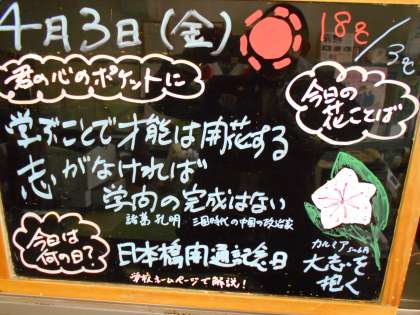 4月3日(金) 18℃/3℃
君の心のポケットに
学ぶことで才能は開花する
志がなければ
学問の完成はない
諸葛孔明 三国時代の中国の政治家
今日の花ことば
カルミア
大志を抱く
今日は何の日?
日本橋開通記念日
学校ホームページで解説!